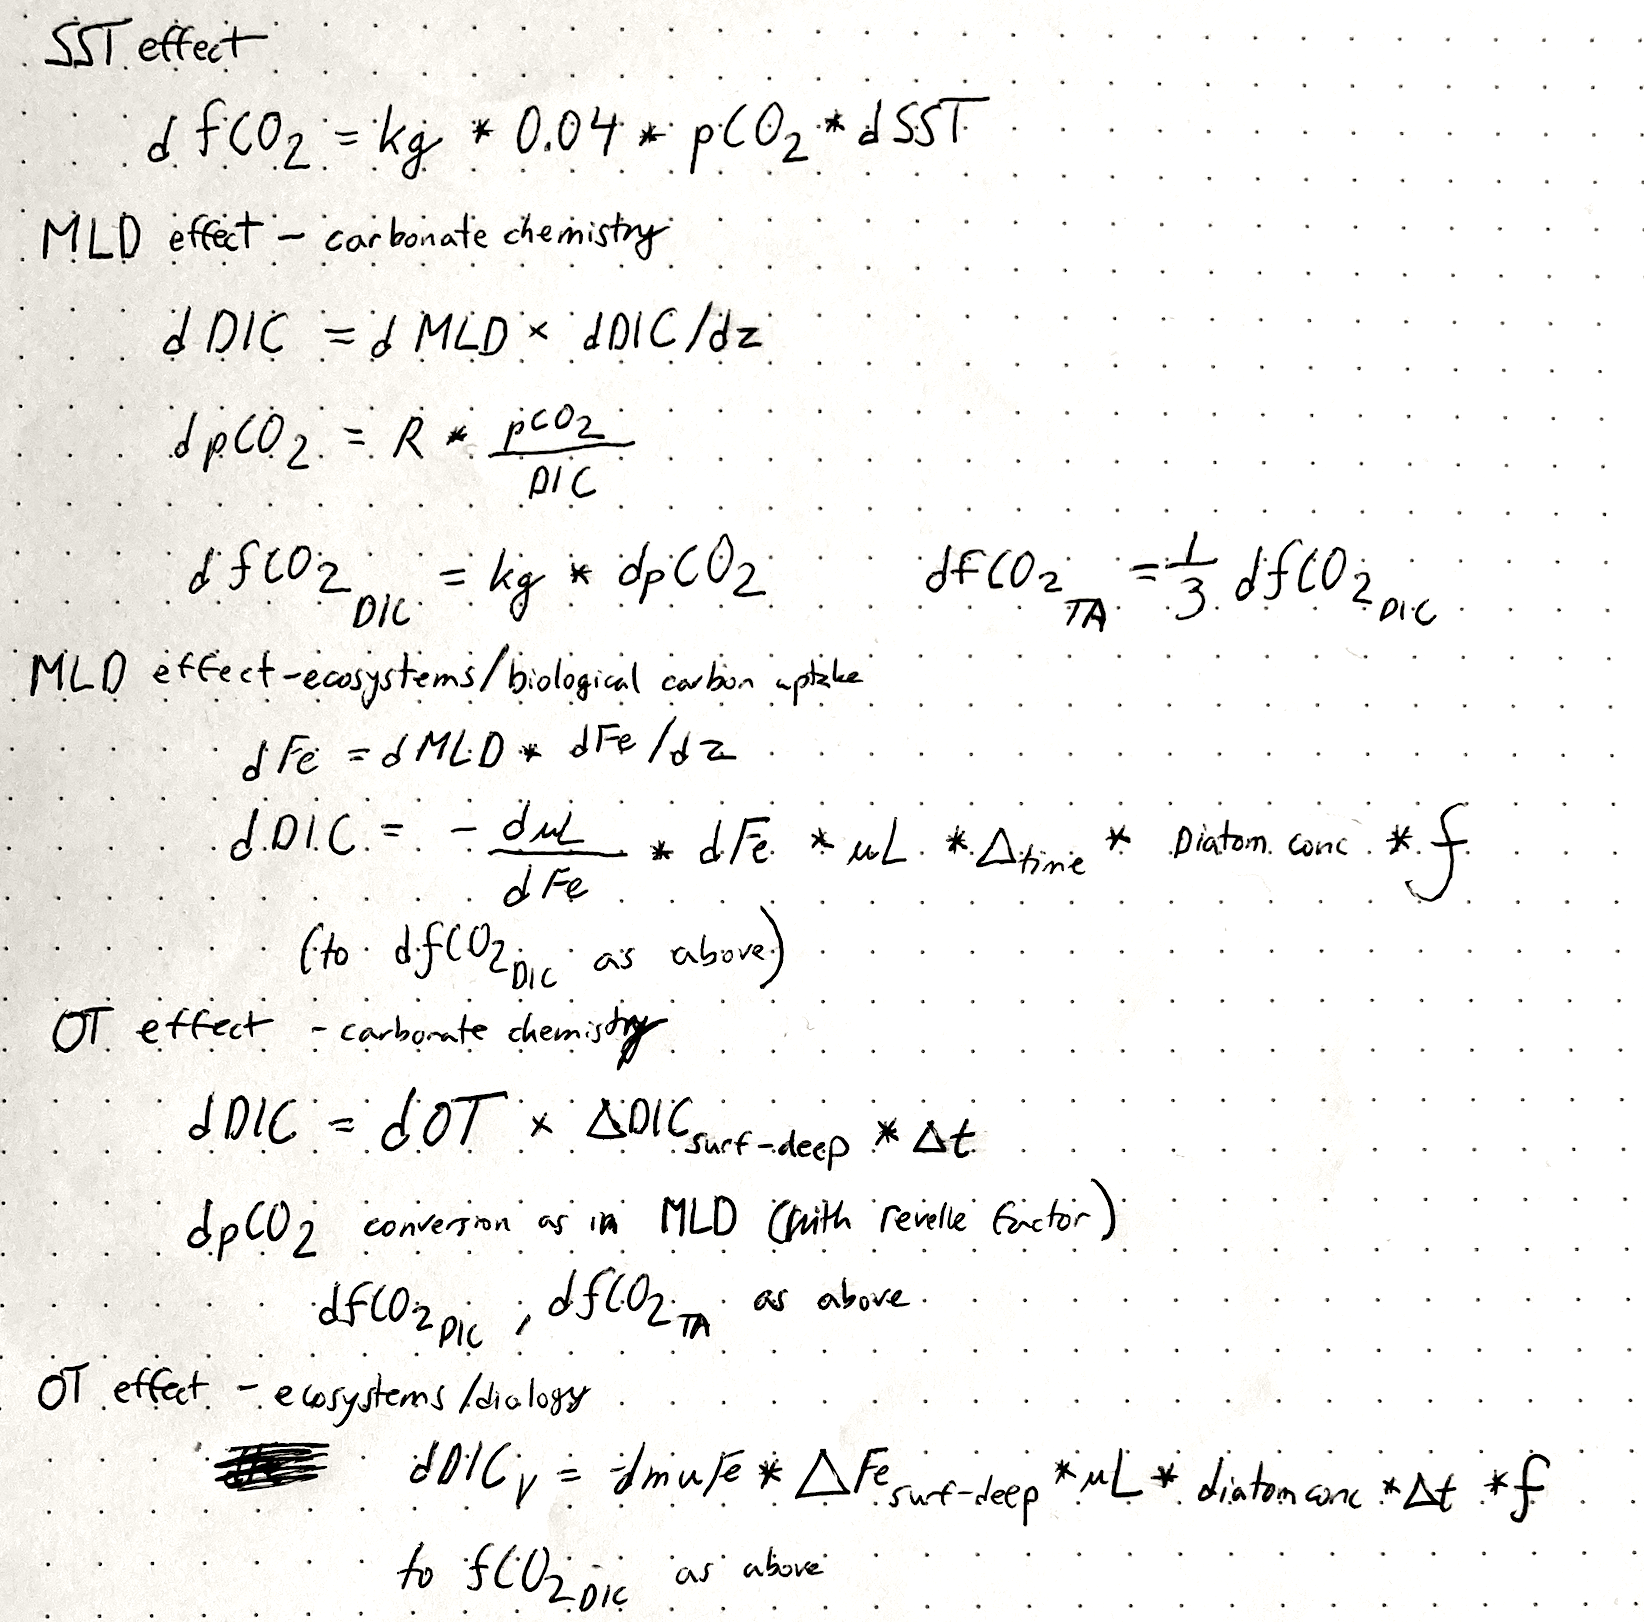 SST effect
d fCO2 = kg * 0.04 * pCO2 * dSST
MLD effect - carbonate chemistry
d DIC = d MLD × dDIC/dz
dpCO2 = R * pCO2 / DIC
d fCO2 DIC = kg * dpCO2 dfCO2 TA = 1/3 dfCO2 DIC
MLD effect-ecosystems/biological carbon uptake
dFe = dMLD * dFe/dz
dDIC = - dμL / dFe * dFe * μL * Δtime * Diatom conc * f
(to dfCO2 DIC as above)
OT effect - carbonate chemistry
dDIC = dOT × ΔDIC surf-deep * Δt
dpCO2 conversion as in MLD (with revelle factor)
dfCO2 DIC, dfCO2 TA as above
OT effect - ecosystems/dialogy
dDIC = -dmuFe * ΔFe surf-deep * μL * diatom conc * Δt * f
to fCO2 DIC as above